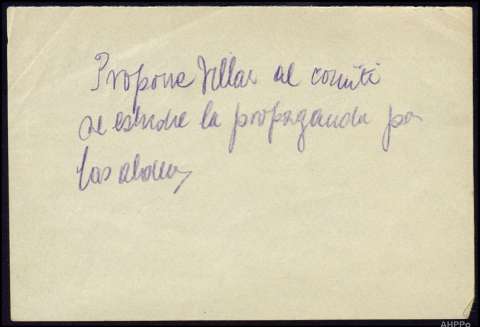 Propone Villar al comité
se estudie la propaganda por
las aldeas
AHPPo